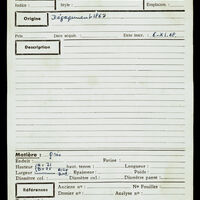 Index : Style : Emplacem. :
Origine Dégagement 1867
Prix Date acquis. : Date inscr. : 6-XI.68
Description
Matière :
Endroit : Patine :
Hauteur haut. tenon : Longueur :
Largeur Epaisseur : Poids :
Diamètre col : Diamètre panse :
Références
Ancien n° : N° Fouilles :
Dossier n° : Analyse n° :